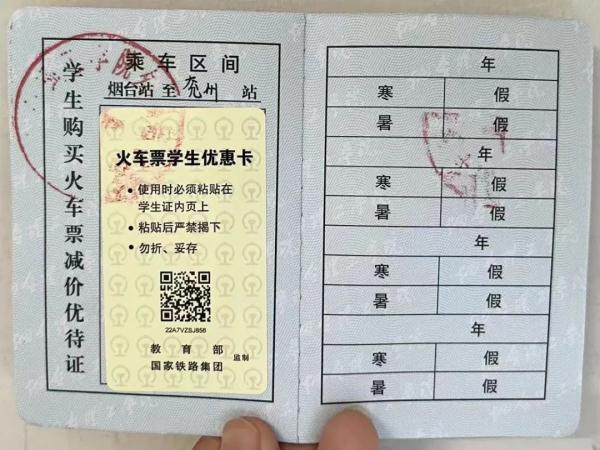 学生购买火车票减价优待证
乘车区间
烟台站 至 亳州 站
火车票学生优惠卡
• 使用时必须粘贴在
学生证内页上
• 粘贴后严禁揭下
• 勿折、妥存
22A7VZSJ856
教育部
国家铁路集团
监制
年
寒 假
暑 假
年
寒 假
暑 假
年
寒 假
暑 假
年
寒 假
暑 假